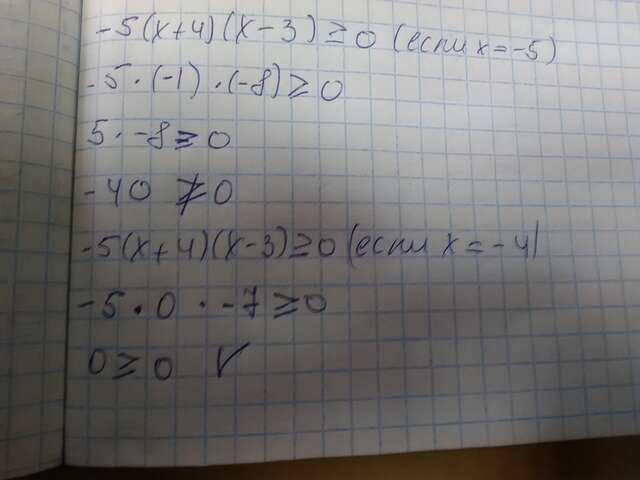 -5(x+4)(x-3)≥0 (если x=-5)
-5·(-1)·(-8)≥0
5·-8≥0
-40≱0
-5(x+4)(x-3)≥0 (если x=-4)
-5·0·-7≥0
0≥0 √